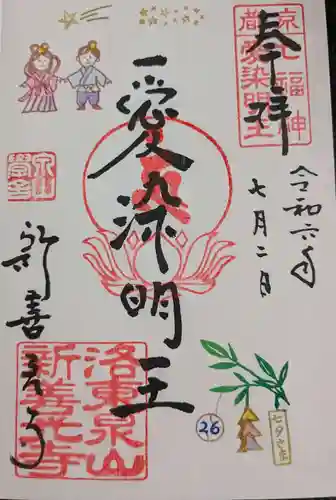 奉拝
京七福神
都愛染明王
令和六年
七月二日
愛染明王
泉山
新善光寺
洛東泉山
新善光寺
26
七夕さま